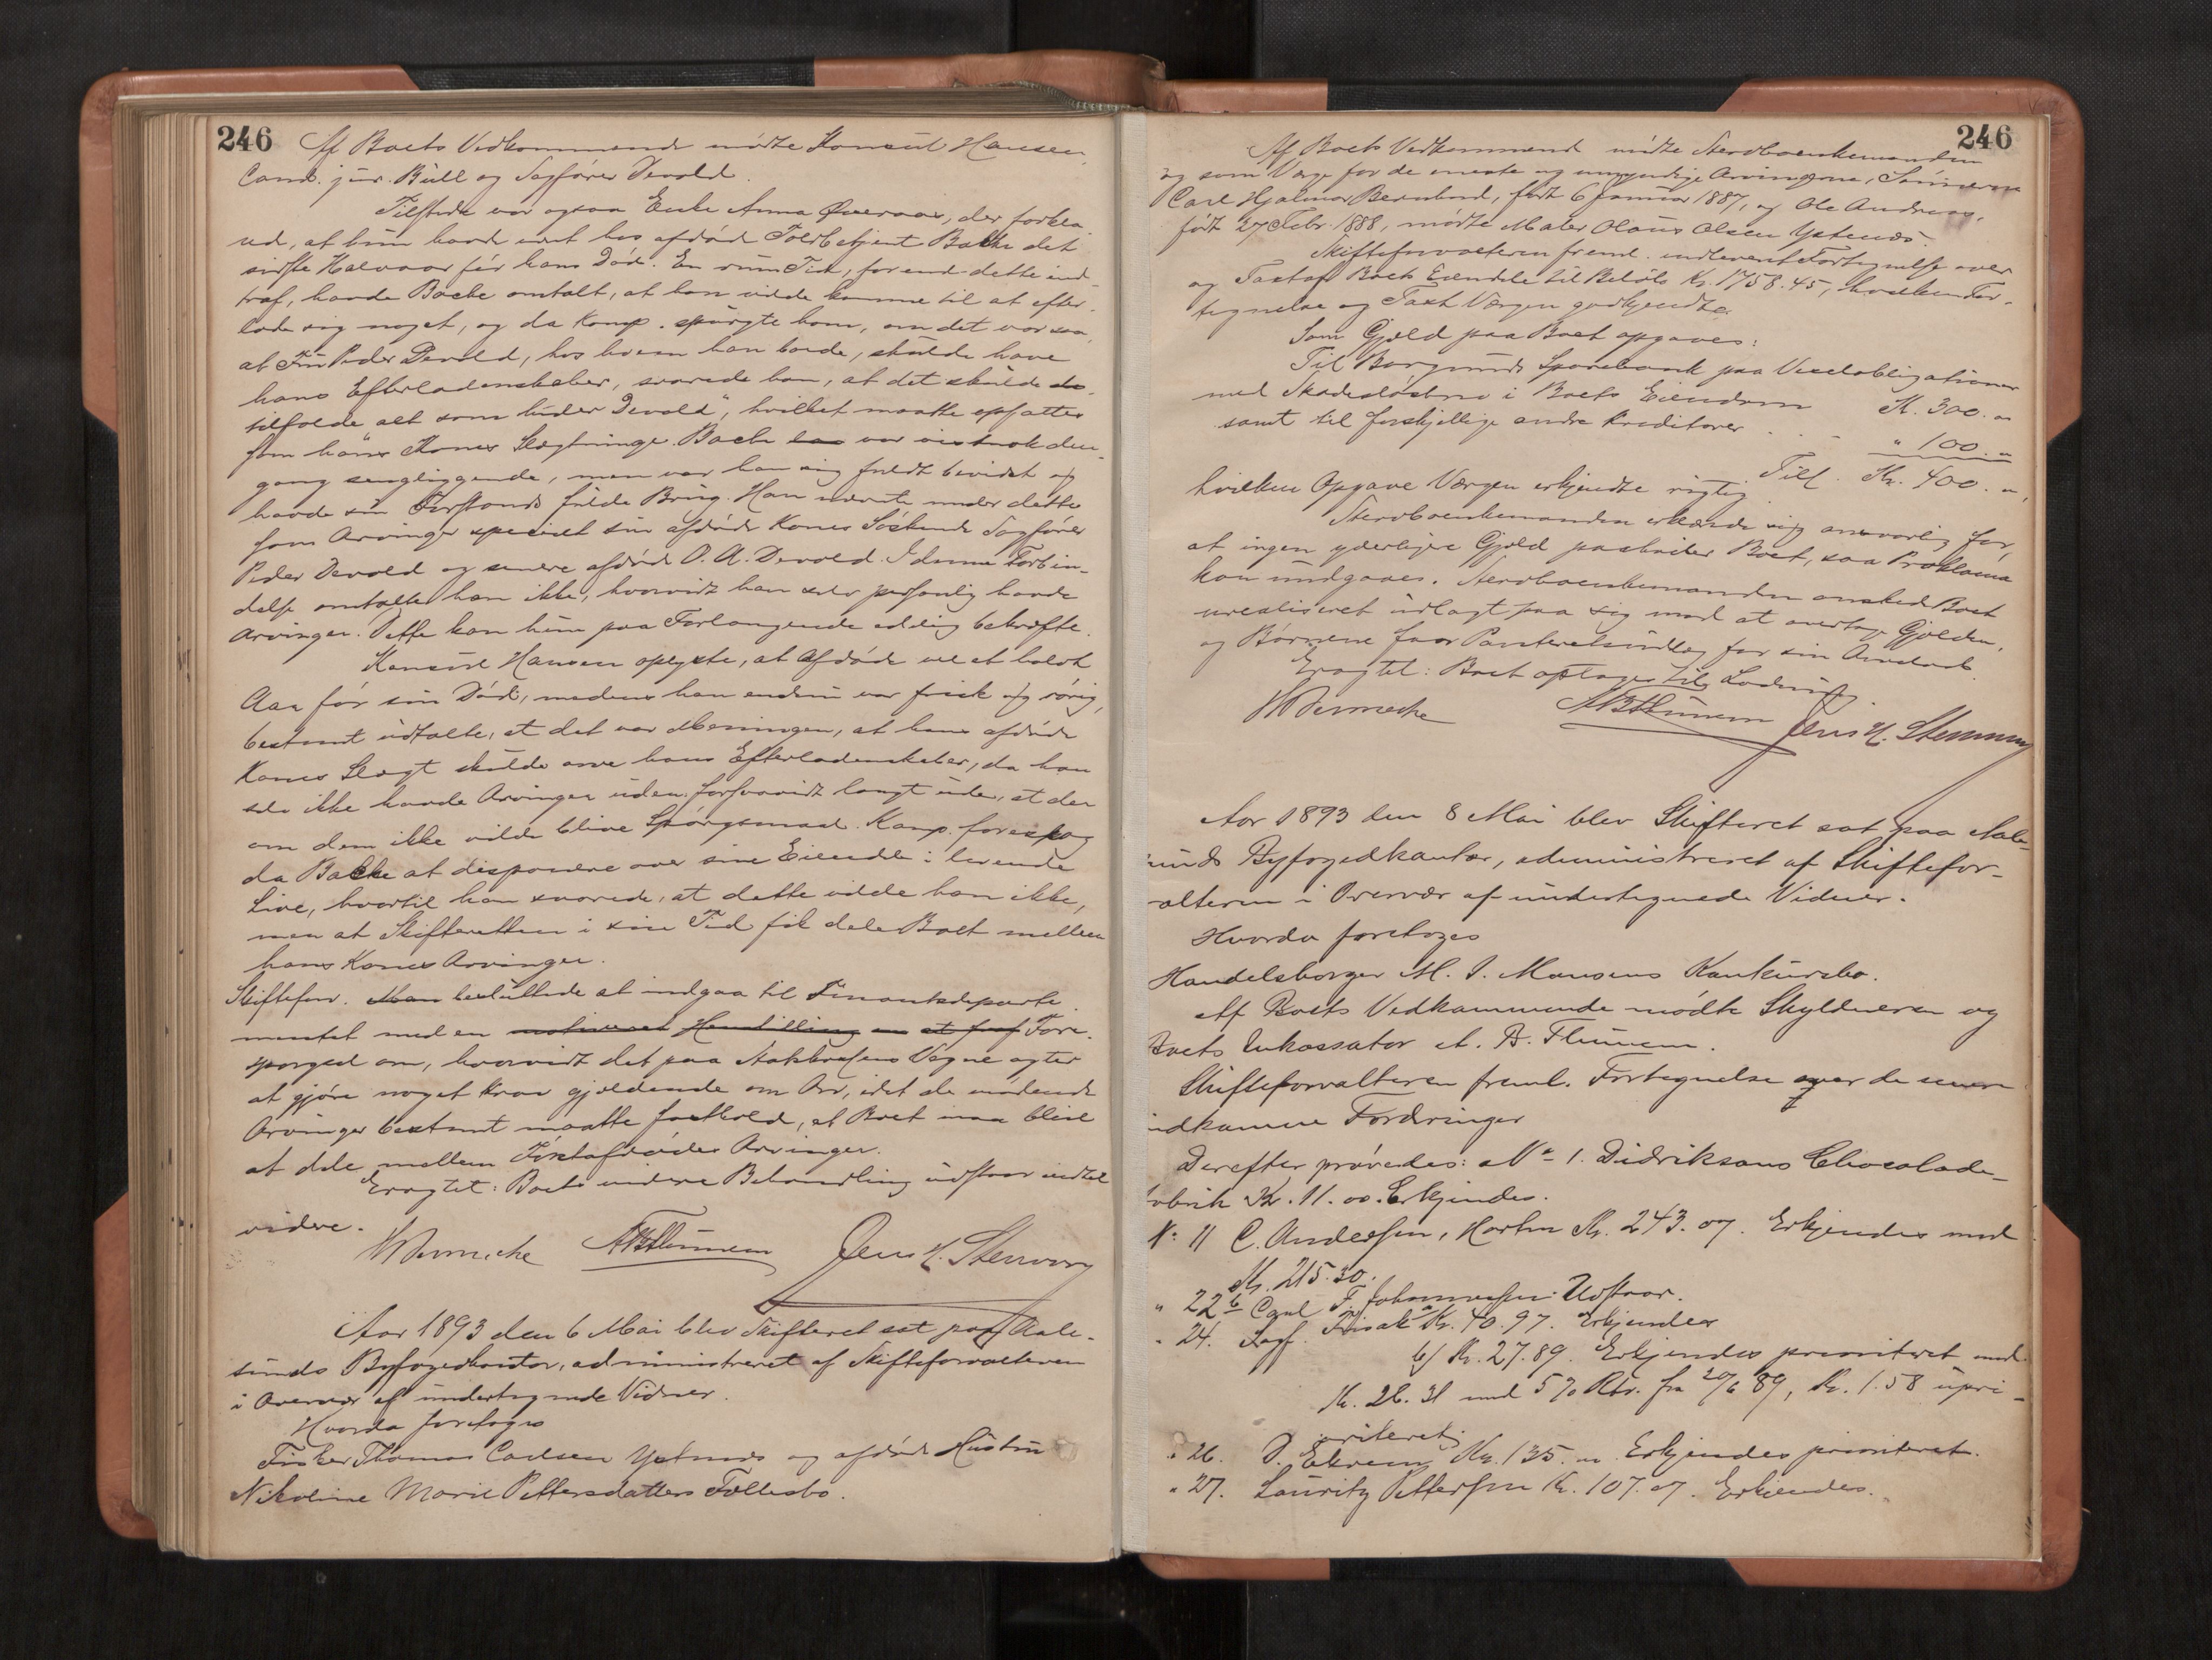 246
Af Boets Vedkommende mødte Konsul Hansen,
Cand. jur. Bull og Sagfører Devold.
Tilstede var ogsaa Enke Anna Øveraas, der forkla-
red, at hun havde været hos afdøde Toldbetjent Backe det
sidste Halvaar før hans Død. En rum Tid, forend dette ind-
traf, havde Backe omtalt, at han vilde komme til at efter-
lade sig noget, og da Komp. spurgte ham, om det var saa,
at Fru Peder Devold, hos hvem han boede, skulde have
hans Efterladenskaber, svarede han, at det skulde
tilfalde alt som heder Devold", hvilket maatte opfattes
som hans Kones Slægtninge. Backe var vistnok den-
gang sengliggende, men var han sig fuldt bevidst og
havde sin Forstands fulde Brug. Han nævnte under dette
som Arvinger specielt sin afdøde Kones Søskende Sagfører
Peder Devold og senere afdøde O. A. Devold. I denne Forbin-
delse omtalte han ikke, hvorvidt han selv personlig havde
Arvinger. Dette kan hun paa Forlangende edelig bekræfte.
Konsul Hansen oplyste, at Afdøde vel et halvt
Aar før sin Død, medens han endnu var frisk og rørig,
bestemt udtalte, at det var Meningen, at hans afdøde
Kones Slægt skulde arve hans Efterladenskaber, da han
selv ikke havde Arvinger uden forsaavidt langt ude, at der
om dem ikke vilde blive Spørgsmaal. Komp. foreslog
da Backe at disponere over sine Eiendele i levende
Live, hvortil han svarede, at dette vilde han ikke,
men at Skifteretten i sin Tid fik dele Boet mellem
hans Kones Arvinger.
Skifteforv. besluttede at indgaa til Finantsdeparte-
mentet med en motiveret Henstilling Fore-
spørgsel om, hvorvidt det paa Statskassens Vegne agter
at gjøre noget Krav gjældende om Arv, idet de mødende
Arvinger bestemt maatte fastholde, at Boet maa blive
at dele mellem Førstafdødes Arvinger.
Eragtet: Boets videre Behandling udstaar indtil
videre.
WDernecke ABThunem Jens H. Stenvaag
Aar 1893 den 6 Mai blev Skifteret sat paa Aale-
sunds Byfogedkontor, administreret af Skifteforvalteren
i Overvær af undertegnede Vidner.
Hvorda foretoges
Fisker Thomas Carlsen Ystenæs og afdøde Hustru
Nikoline Marie Pettersdatters Fællesbo.
246
Af Boets Vedkommende mødte Stervboenkemanden
og som Værge for de eneste og umyndige Arvingerne, Sønnerne
Carl Hjalmar Bernhard, født 6 Januar 1887, og Ole Andreas,
født 27 Febr. 1888, mødte Maler Olaus Olsen Ystenæs.
Skifteforvalteren freml. indleveret Fortegnelse over
og Taxt af Boets Eiendele til Beløb Kr. 1758.45, hvilken For-
tegnelse og Taxt Værgen godkjendte.
Som Gjæld paa Boet opgaves:
Til Borgunds Sparebank paa Vexelobligationer
med Skadesløsbrev i Boets Eiendom Kr. 300. "
samt til forskjellige andre Kreditorer - " 100. "
Till. Kr. 400. ",
hvilken Opgave Værgen erkjendte rigtig.
Stervboenkemanden erklærede sig ansvarlig for,
at ingen yderligere Gjæld paahviler Boet, saa Proklama
kan undgaaes. Stervboenkemanden ønsked Boet
urealiseret udlagt paa sig mod at overtage Gjælden,
og Børnene faar Panteretsudlæg for sin Arvelod.
Eragtet: Boet optages til Slutning
WDernecke ABThunem Jens H. Stenvaag
Aar 1893 den 8 Mai blev Skifteret sat paa Aale-
sunds Byfogedkontor, administreret af Skiftefor-
valteren i Overvær af undertegnede Vidner.
Hvorda foretoges
Handelsborger M. J. Monsens Konkursbo.
Af Boets Vedkommende mødte Skyldneren og
Boets Inkassator A. B. Thunem.
Skifteforvalteren freml. Fortegnelse over de senere
indkomne Fordringer
Derefter prøvedes: No 1. Didriksons Chocolade-
fabrik Kr. 11.00. Erkjendes.
No 11 C. Andersen, Horten Kr. 243.07. Erkjendes med
Kr. 215.30.
" 22 b Carl F. Johannessen. Udstaar.
" 24. Sagf. Frisak a Kr. 40.97. Erkjendes
b/ Kr. 27.89. Erkjendes prioriteret med
Kr. 26.31 med 5 % Rtr. fra 20/6 89, Kr. 1.58 upri-
oriteret.
" 26. O. Ekrem Kr. 135. ". Erkjendes prioriteret.
" 27. Lauritz Pettersen Kr. 107.07. Erkjendes.